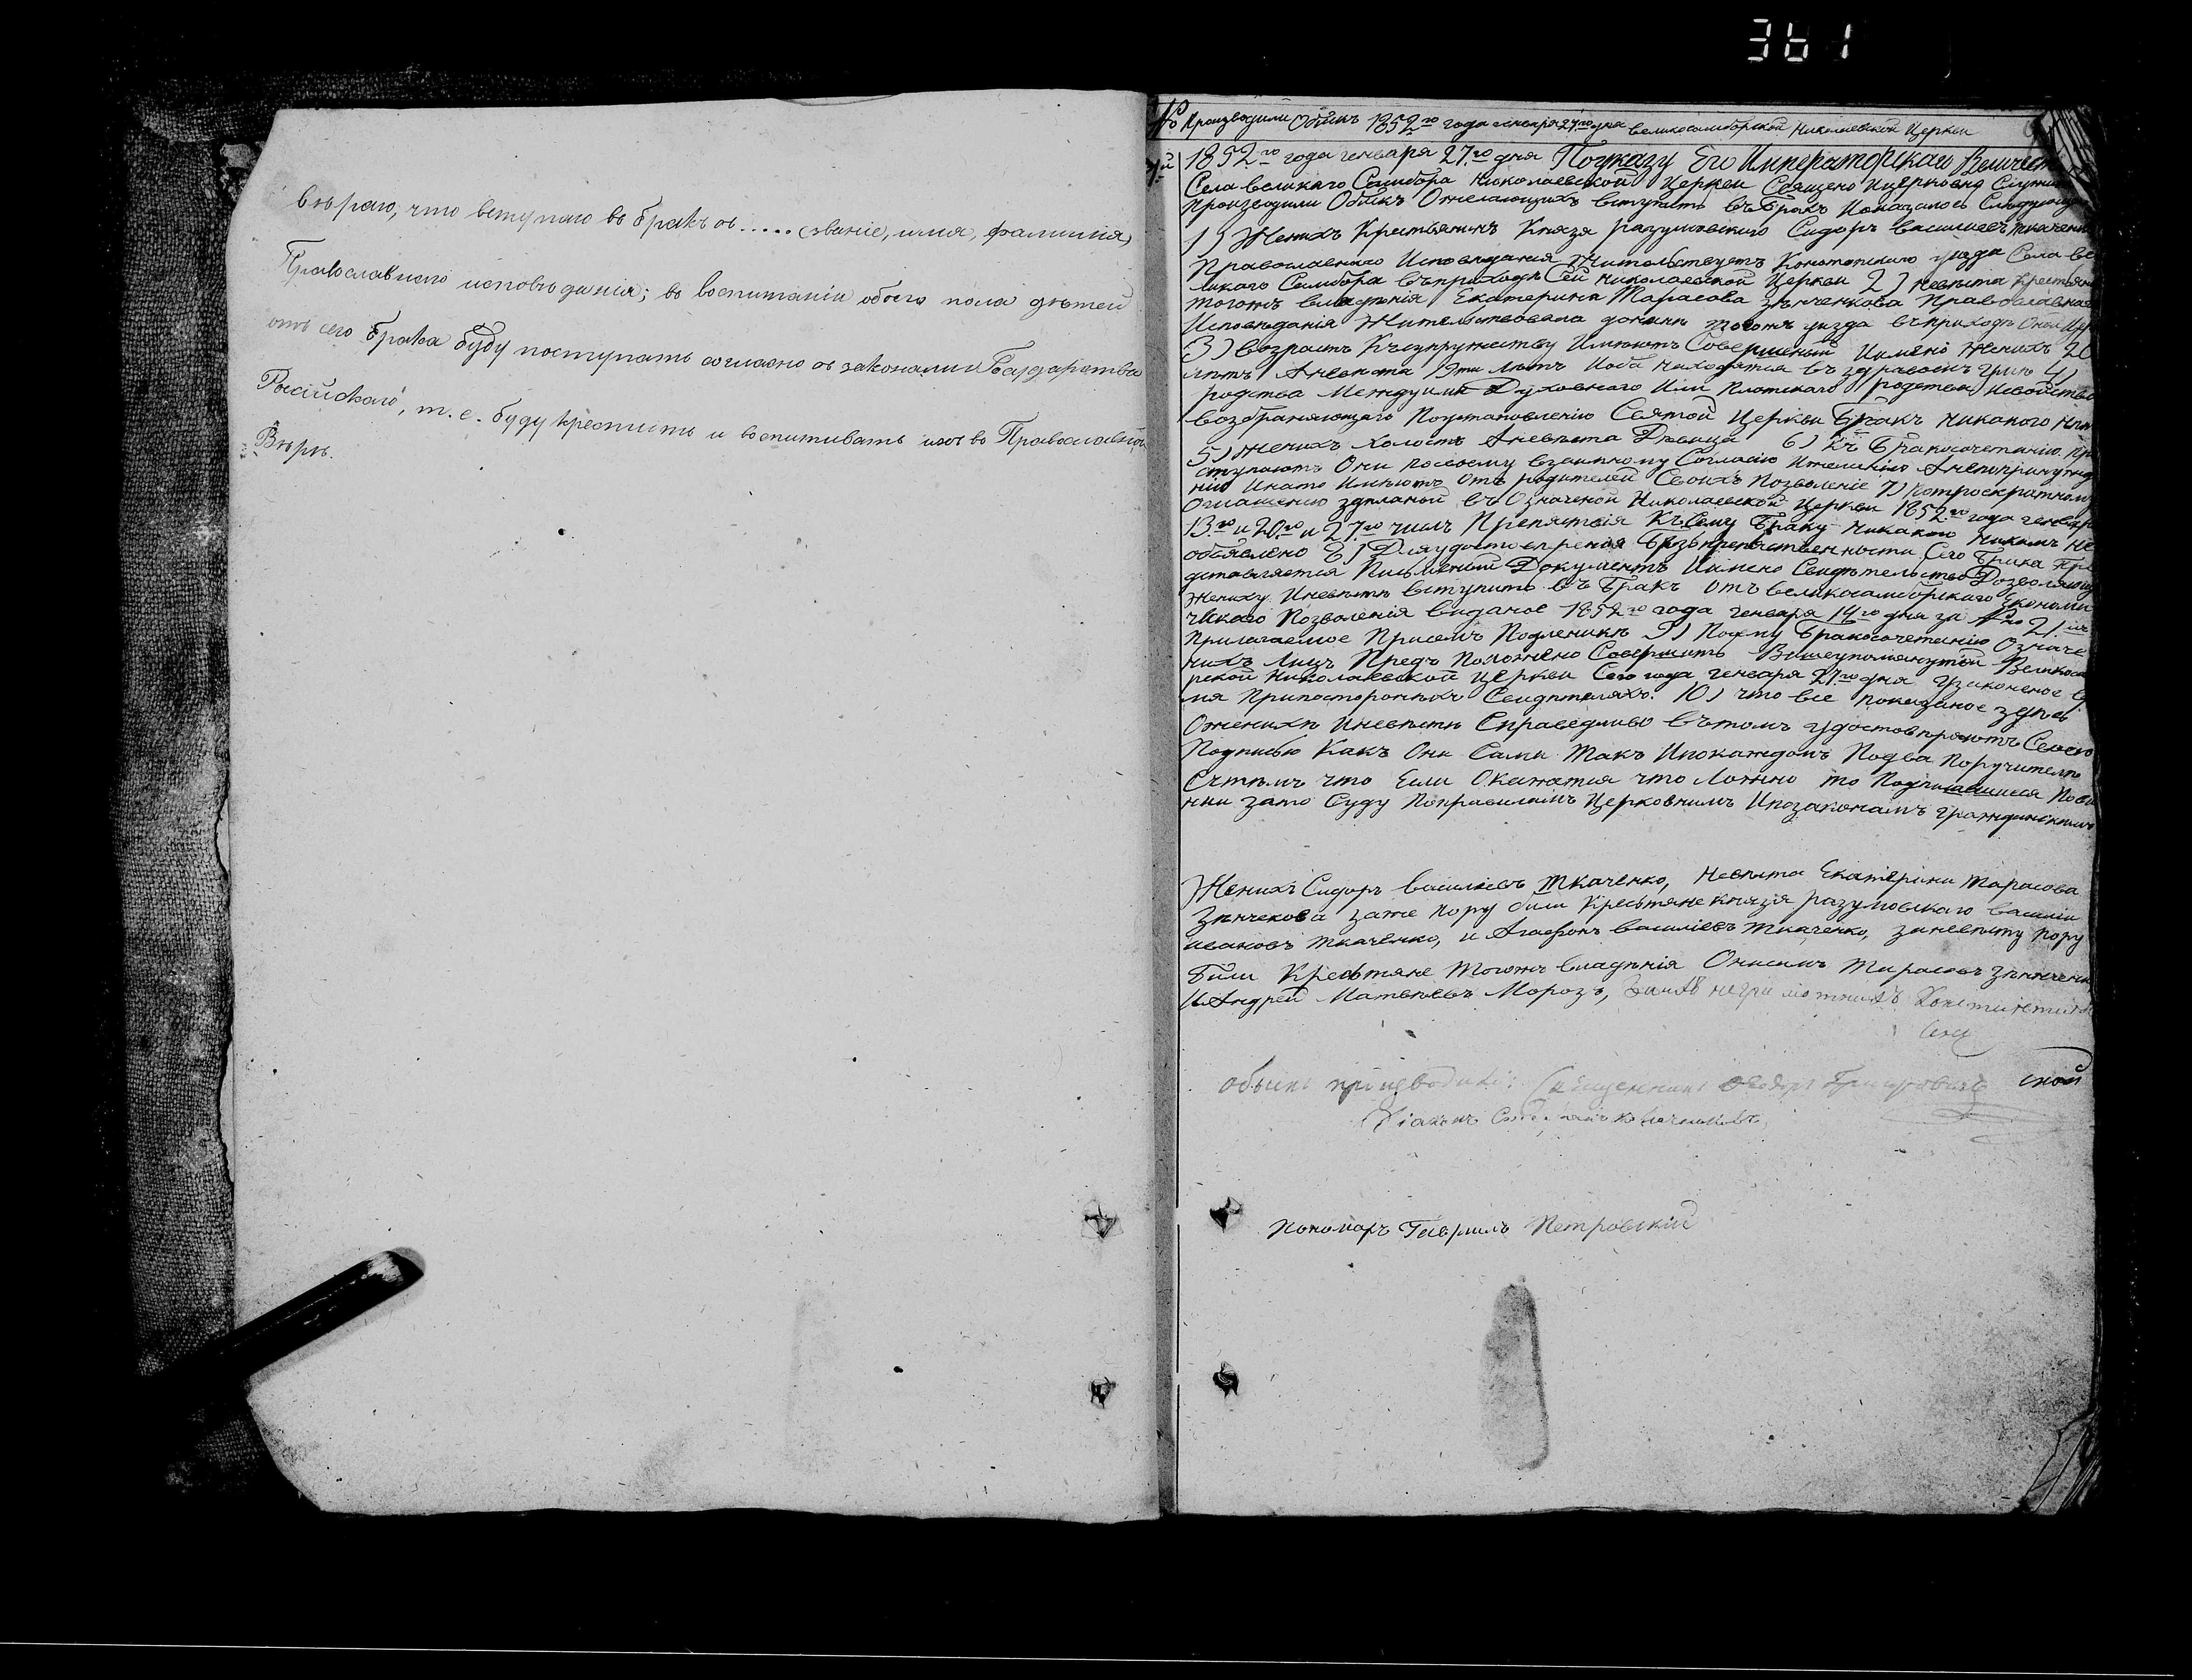 361
вѣраю, что вступаю въ бракъ съ ..... (званіе, имя, фамилія)
Православнаго исповѣданія; въ воспитаніи обоего пола дѣтей
отъ сего брака буду поступать согласно съ законами Государства
Россійскаго, т. е. буду крестить и воспитывать ихъ въ Православной
Вѣрѣ.
№ Производили Обыскъ 1852го года генваря 27го дня великосамборской Николаевской Церкви
1й 1852го года генваря 27го дня Поуказу Его Императорскаго Величест
Села великаго Самбора Николаевской Церкви Священо Ицерковно Служит
производили Обыскъ Ожелающихъ вступить въ Бракъ Иоказалось Следующ
1) Женихъ Крестьянинъ Князя разумовскаго Сидоръ василіевъ ткаченко
Православнаго Исповѣданія Жительствуетъ Конотопскаго уезда Села ве
ликаго Самбора въ приходѣ Сей Николаевской Церкви 2) невѣста Крестьян
тогожъ владѣнія Екатерина Тарасова зѣнченкова Православнаго
Исповѣданія Жительствовала донынѣ тогожъ уезда въ приходѣ Оной Цер
3) возрастъ Къ супружеству Имѣютъ Совершеный Имено Женихъ 20
лѣтъ Аневѣста 19ти лѣтъ Иоба находятся въ здравомъ умѣ 4)
родства Междуими Духовнаго Или плотскаго родства Исвойства
возбраняющаго Поустановленію Святой Церкви Бракъ никакого нѣт
5) Женихъ холостъ Аневѣста Дѣвица 6) Къ Бракосочетанію при
ступаютъ Они посвоему взаимному Согласію Ижеланію Анепопринужде
нію Инато Имѣютъ Отъ родителей Своихъ позволеніе 7) Потроекратному
Оглашенію здѣланый въ Означеной Николаевской Церкви 1852го года генвар
13го и 20го и 27го числъ Препятствія Къ Сему Браку Никакого Никемъ не
объявлено 8) Для удостовѣренія Безъпрепятственности Сего Брака пре
дставляется Письменый Документъ Имено Свидѣтельство Дозволяющ
Жениху Иневѣстѣ вступить въ Бракъ отъ великосамборскаго Економи
ческаго Позволенія виданое 1852го года генваря 14го дня за №о 21мъ
прилагаемое Присемъ Подленикѣ 9) Посему Бракосочетанію Означе
ныхъ Лицъ Предъ Положено Совершить Вышеупомянутой Великоса
рской Николаевской Церкви Сего года генваря 27го дня узаконеное вр
мя Припостороннихъ Свидѣтеляхъ. 10) что все показаное здѣсь
Оженихѣ Иневѣстѣ Справедливо въ томъ удостовѣряютъ Своею
Подписью Какъ Они Сами Такъ Ипокаждомъ Подва Поручителя
Стѣмъ что Если Окажется что Ложно то Подписавшиеся пови
нни зато Суду Поправиламъ Церковнимъ Ипозаконамъ гражданскимъ
Женихъ Сидоръ василіевъ ткаченко, Невѣста Екатерина тарасова
Зѣнчекова заже пору били Крестьяне князя разумовскаго василій
ивановъ ткаченко, и Агафонъ василіевъ ткаченко, заневѣсту пору
били Крестьяне тогожъ владѣнія Онисимъ тарасовъ зѣнченк
ИАндрей Матвѣевъ Морозъ, неграмотныхъ Константинъ
обыскъ производили: Священникъ Феодоръ
Діаконъ
Пономаръ Гавриилъ Петровскій